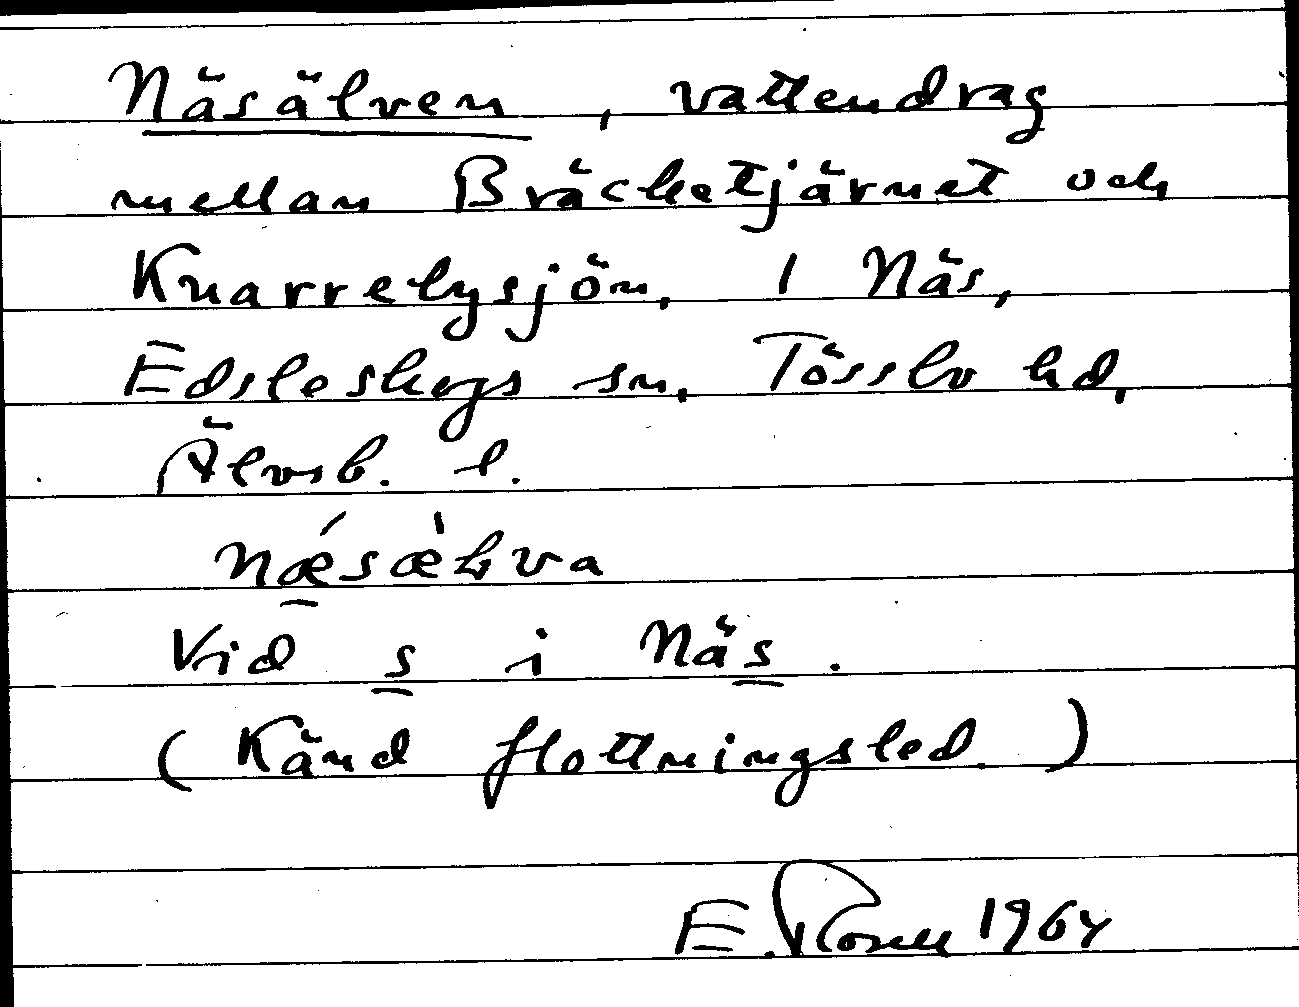 Näsälven, vattendrag
mellan Bräcketjärnet och
Knarrebysjön. I Näs,
Edsleskogs sn. Tössbo hd,
Älvsb. l.
næ´sæ`lva
Vid s i Näs.
(Känd flottningsled.)
E. 1964